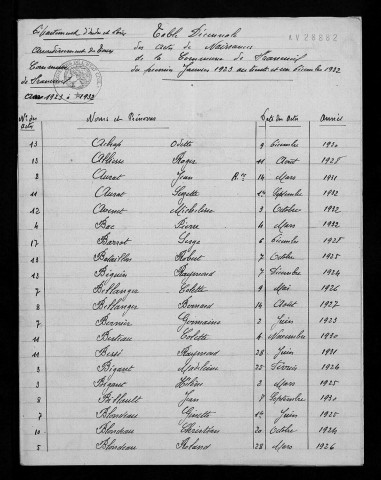 Département d'Indre et Loire
Arrondissement de Tours
Commune
de Francueil
Ans 1923 à 1932
Table Décennale
des Actes de Naissances
de la Commune de Francueil
du premier Janvier 1923 au trente et un Décembre 1932
AV 28882
Nos des Actes Noms et Prénoms Date des Actes Années
13 Odette 9 Décembre 1930
13 Roger 11 Août 1928
2 Aurat Jean 14 Mars 1931
11 Aurat Ginette 1er Septembre 1932
12 Micheline 9 Octobre 1932
4 Bac Pierre 4 Mars 1932
17 Barrot Serge 6 Décembre 1928
13 Bataillon Robert 7 Octobre 1925
13 Béguin Raymond 7 Décembre 1924
7 Bellanger Colette 9 Mai 1926
8 Bellanger Bernard 14 Août 1927
7 Bernier Germaine 2 Juin 1923
11 Berteau Colette 4 Novembre 1930
11 Raymond 28 Juin 1931
3 Bigaret Madeleine 25 Février 1924
3 Hélène 2 Mars 1925
8 Billault Jean 8 Septembre 1930
7 Blondeau Ginette 1er Juin 1925
10 Blondeau Christian 20 Octobre 1924
5 Blondeau Roland 28 Mars 1926